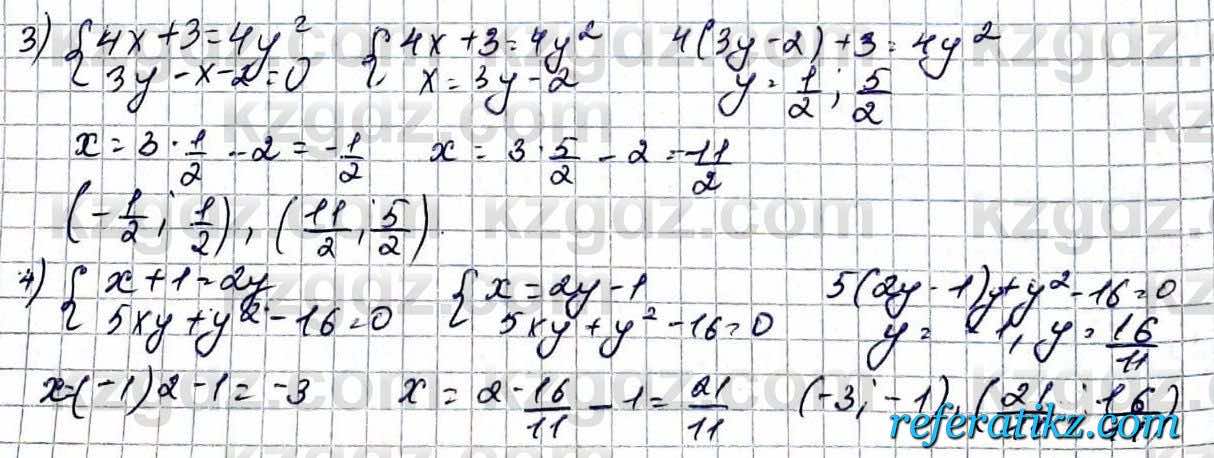 3) { 4x+3=4y²   { 4x+3=4y²   4(3y-2)+3=4y²
3y-x-2=0   x=3y-2   y=1/2; 5/2
x=3·1/2-2=-1/2   x=3·5/2-2=11/2
(-1/2; 1/2), (11/2; 5/2).
4) { x+1=2y   { x=2y-1   5(2y-1)y+y²-16=0
5xy+y²-16=0   5xy+y²-16=0   y=-1, y=16/11
x=(-1)2-1=-3   x=2·16/11-1=21/11   (-3; -1), (21/11; 16/11)
kzgdz.com
referatikz.com